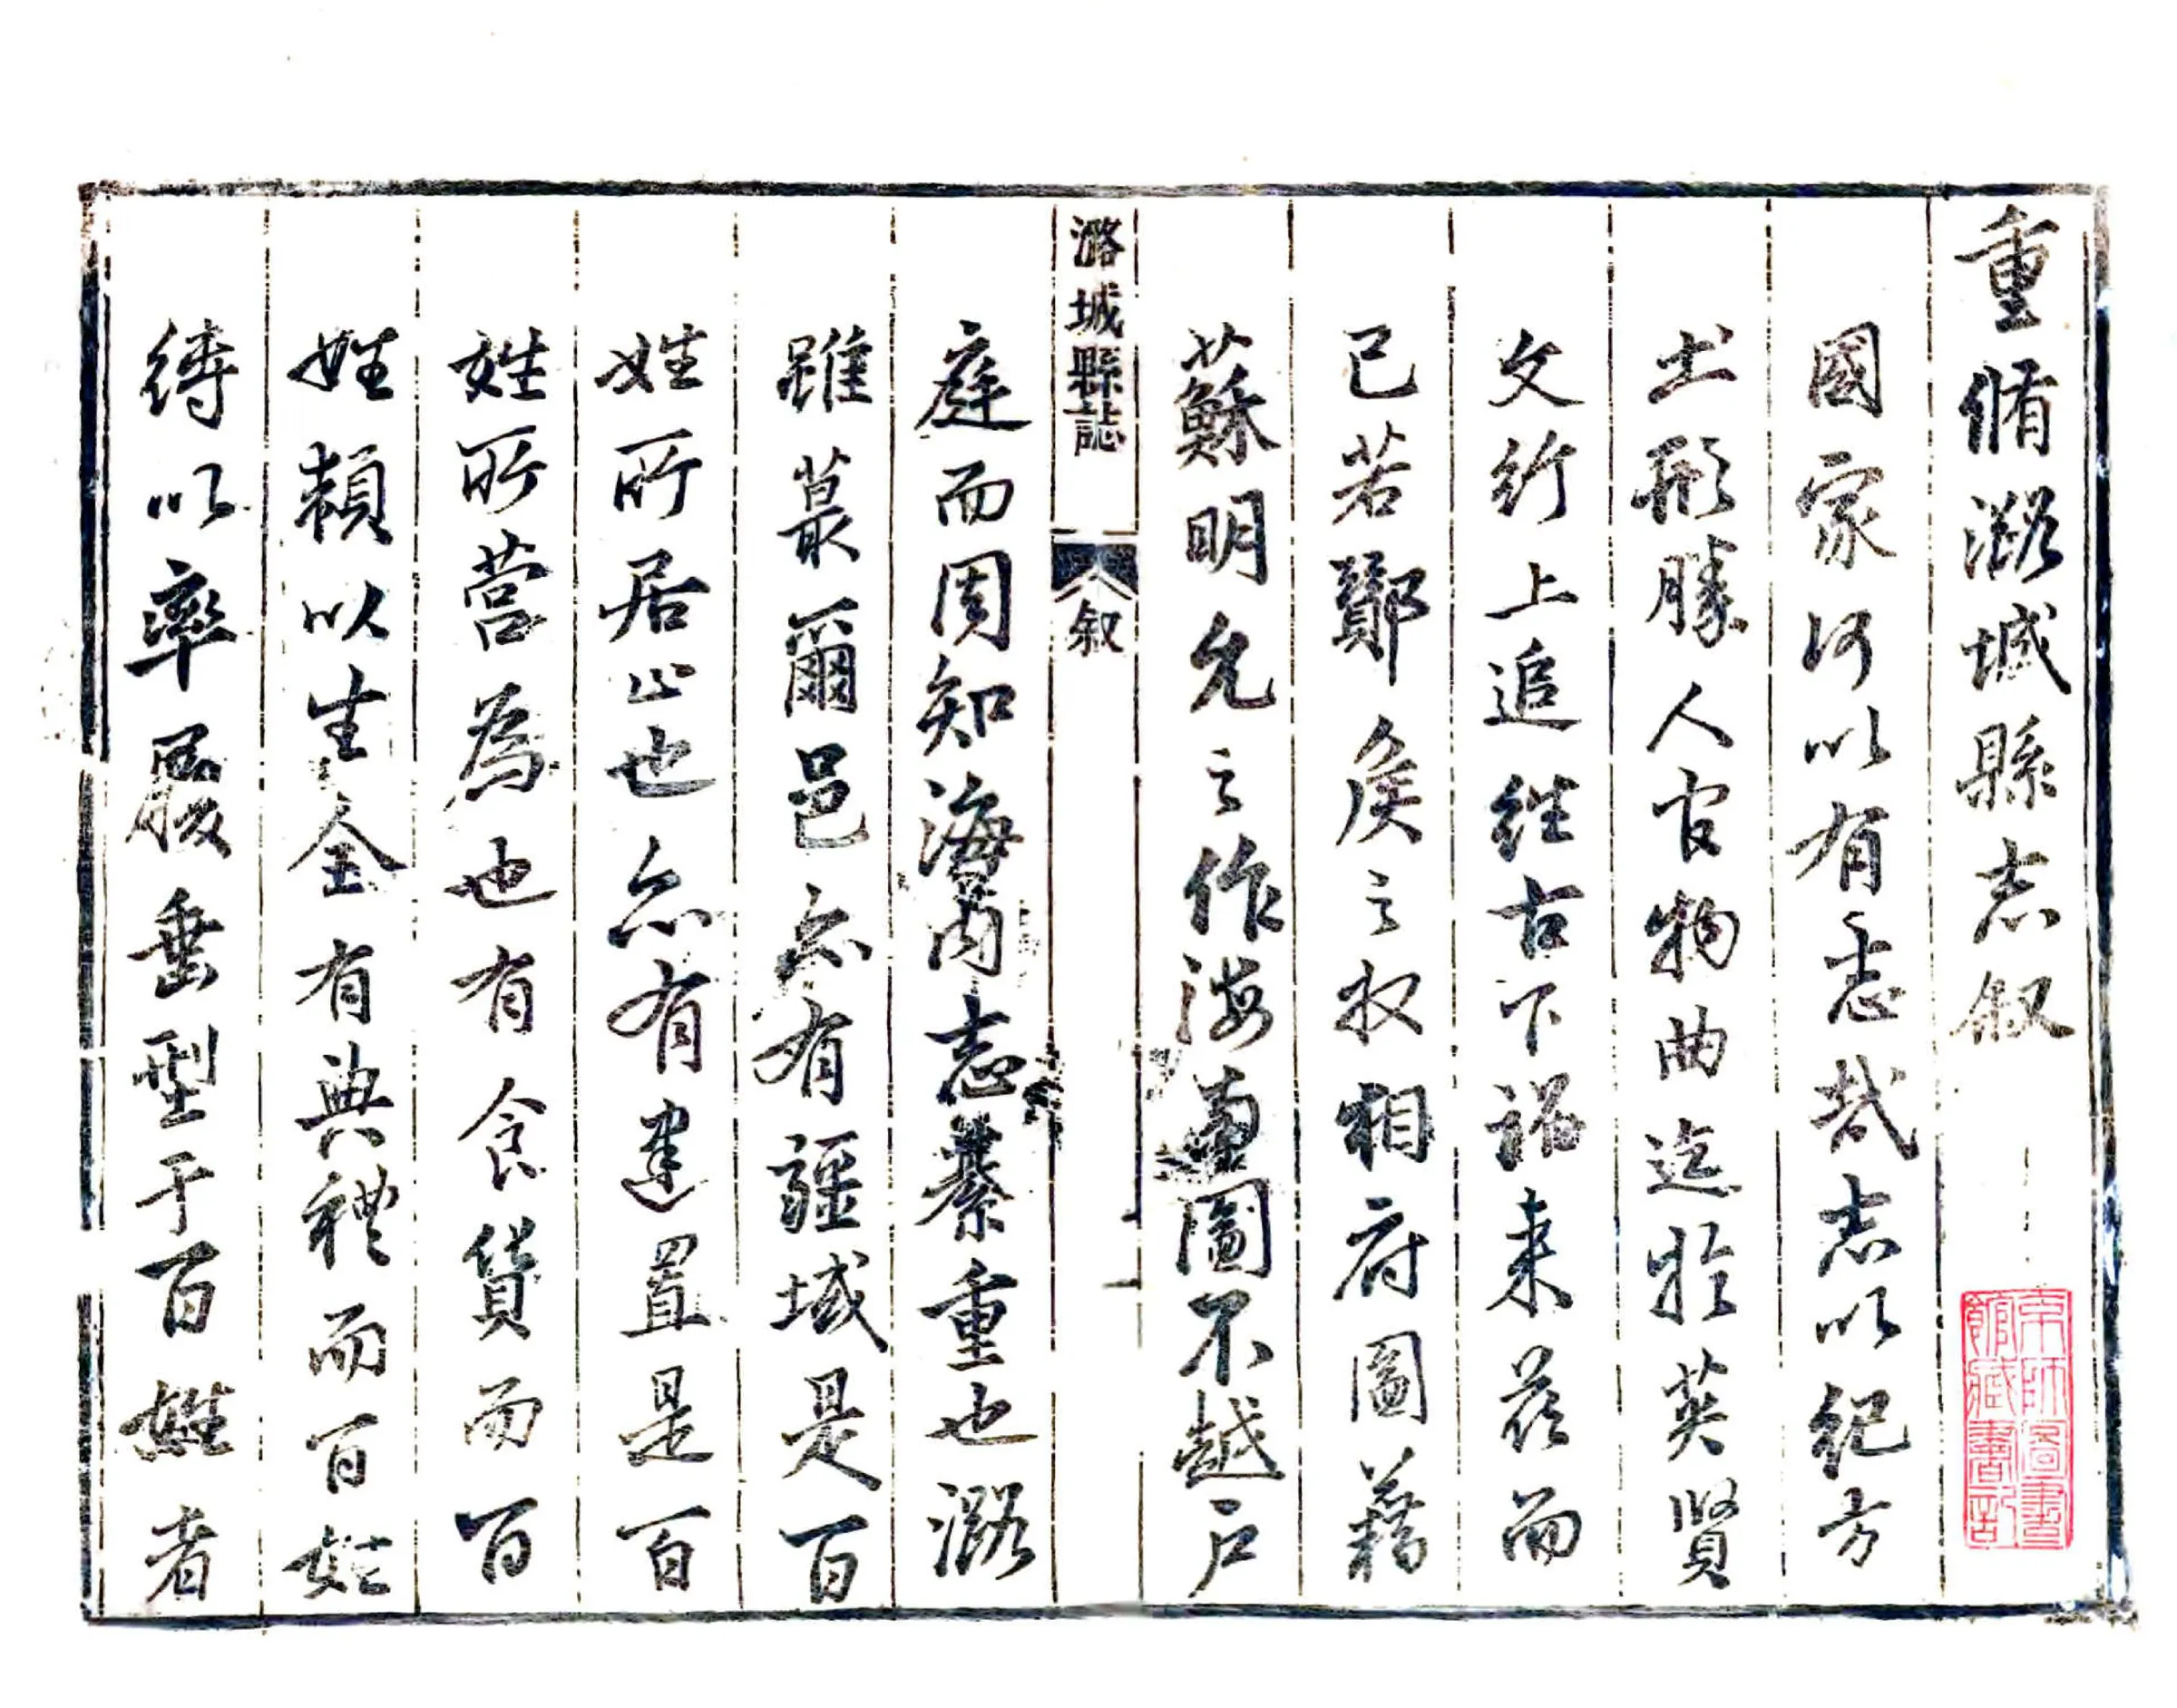 重脩潞城縣志叙
國家何以有志哉志以紀方
土形勝人官物曲迄於英賢
文行上追往古下詔来茲而
已若鄼侯之收相府圖藉
蘇明允之作海南圖不越户
庭而周知海內志綦重也潞
雖蕞爾邑亦有疆域是百
姓所居止也亦有建置是百
姓所营為也有食貨而百
姓頼以生全有典禮而百姓
以率履垂型于百姓者
潞城縣誌
叙
京師圖書
館藏書記